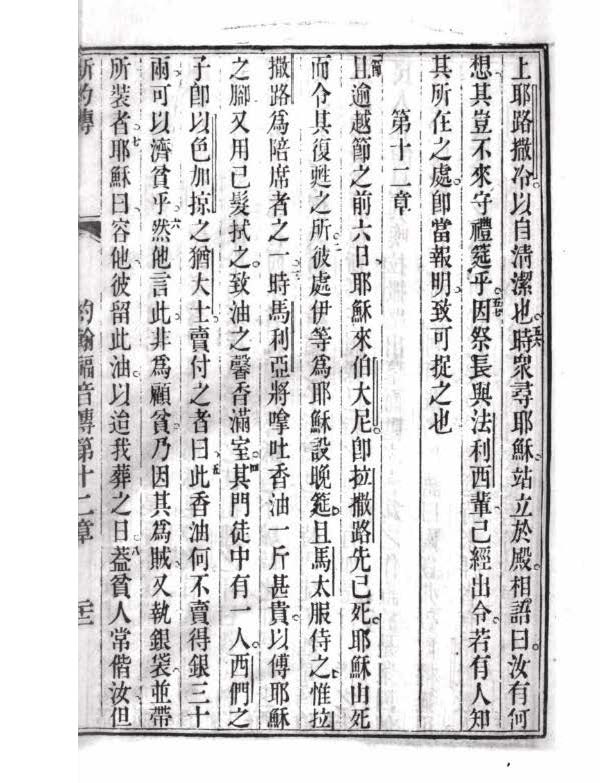 上耶路撒冷以自清潔也時衆尋耶穌站立於殿相語曰汝有何
想其豈不來守禮筵乎因祭長與法利西輩已經出令若有人知
其所在之處卽當報明致可捉之也
第十二章
且逾越節之前六日耶穌來伯大尼卽拉撒路先已死耶穌由死
而令其復甦之所彼處伊等爲耶穌設晚筵且馬太服侍之惟拉
撒路爲陪席者之一時馬利亞將嗱吐香油一斤甚貴以傅耶穌
之腳又用己髮拭之致油之馨香滿室其門徒中有一人西們之
子卽以色加掠之猶大士賣付之者曰此香油何不賣得銀三十
兩可以濟貧乎然他言此非爲顧貧乃因其爲賊又執銀袋並帶
所裝者耶穌曰容他彼留此油以迨我葬之日葢貧人常偕汝但
新約傳 約翰福音傳第十二章